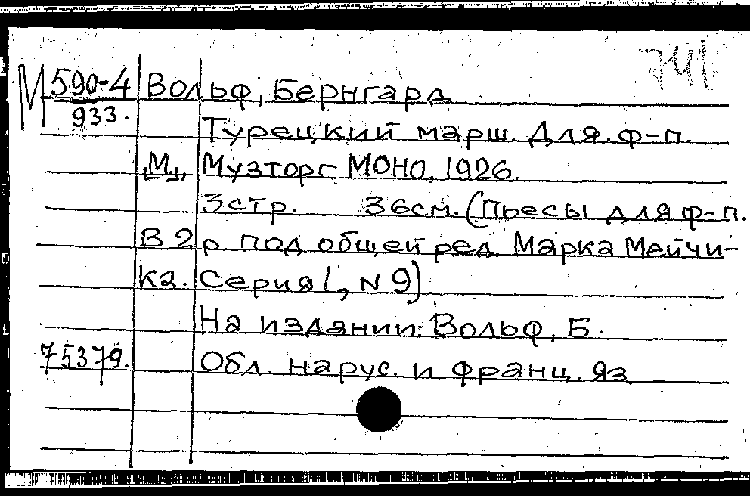 М 590-4 Вольф, Бернгард
933.
Турецкий марш. Для ф-п.
"М", Музторг МОНО, 1926.
3стр. 36см. (Пьесы для ф-п.
В 2 р под общей ред. Марка Мейчи-
ка. Серия 1, N 9)
На издании: Вольф, Б.
75379. Обл. на рус. и франц. яз